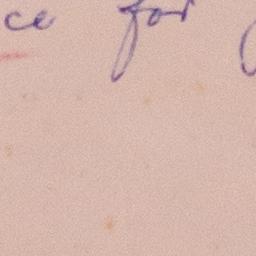 ce for